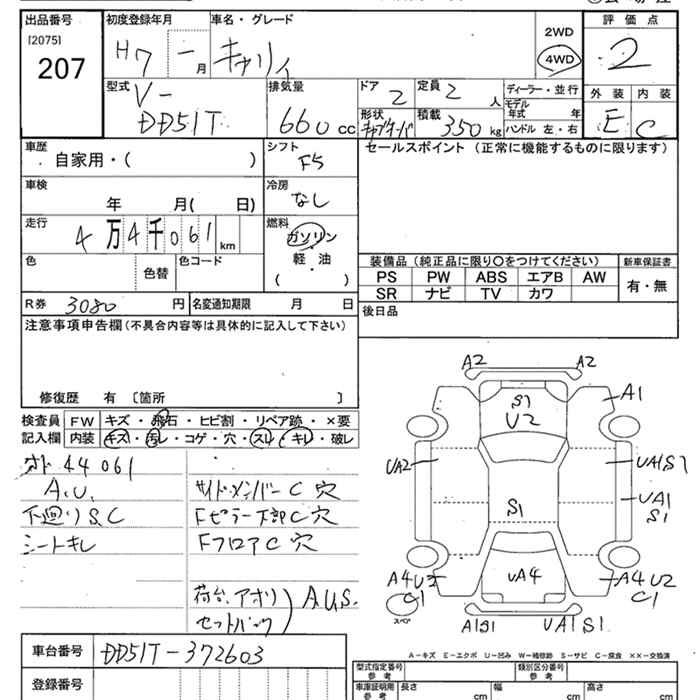 出品番号
[2075]
207
初度登録年月
H7 - 月
車名・グレード
キャリィ
2WD
4WD
評価点
2
型式
V-
DD51T
排気量
660 cc
ドア
2
定員
2 人
形状
積載
350 kg
ディーラー・並行
モデル
年式 年
ハンドル 左・右
外装 内装
E C
車歴
自家用・( )
シフト
F5
セールスポイント (正常に機能するものに限ります)
車検
年 月( 日)
冷房
なし
走行
4万4千061 km
燃料
ガソリン
・
軽・油
・
( )
色
色替
色コード
装備品 (純正品に限り〇をつけてください)
新車保証書
PS PW ABS エアB AW
SR ナビ TV カワ
有・無
R券 3080 円
名変通知期限 月 日
後日品
注意事項申告欄 (不具合内容等は具体的に記入して下さい)
修復歴 有 〔箇所 〕
検査員
記入欄
FW キズ・飛石・ヒビ割・リペア跡・×要
内装 キズ・汚レ・コゲ・穴・スレ・キレ・破レ
オド 44061
A.U.
下廻りS.C
シートキレ
サイドメンバーC 穴
Fピラー下部C 穴
FフロアC 穴
荷台、アオリ
セットバック
A.U.S.
A2 A2
A1
S1
U2
UA2
UA1S1
UA1
S1
S1
UA4
A4U2
C1
スペア
A4U2
C1
A1S1
UA1S1
車台番号 DD51T-372603
登録番号
A-キズ E-エクボ U-凹み W-補修跡 S-サビ C-腐食 XX-交換済
型式指定番号
参考
類別区分番号
参考
車庫証明用
参考
長さ cm
幅 cm
高さ cm